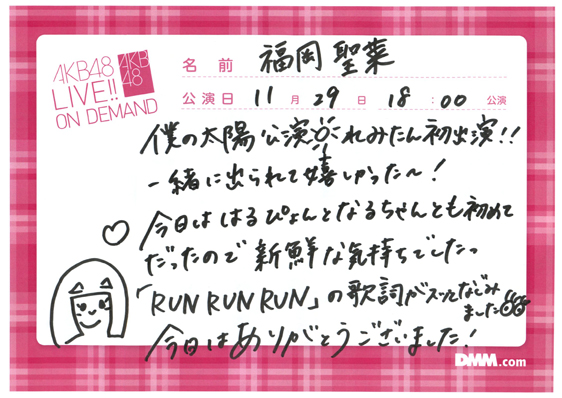 AKB48
LIVE!!
ON DEMAND
AKB
48
名前 福岡 聖菜
公演日 11月 29日 18:00 公演
僕の太陽公演れみたん初出演!!
一緒に出られて嬉しかった〜!
今日ははるぴょんとなるちゃんとも初めて
だったので新鮮な気持ちでしたっ
「RUN RUN RUN」の歌詞が
なじみ
ました
今日はありがとうございました!
DMM.com